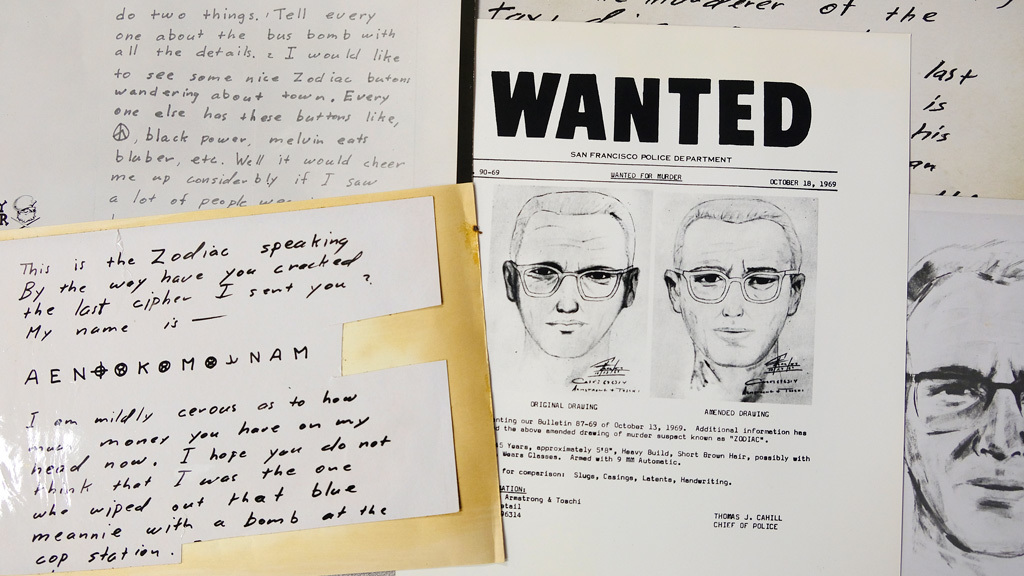 do two things. Tell every
one about the bus bomb with
all the details. 2 I would like
to see some nice Zodiac butons
wandering about town. Every
one else has these buttons like,
☮, black power, melvin eats
bluber, etc. Well it would cheer
me up considerbly if I saw
a lot of people
of the
last
is
his
This is the Zodiac speaking
By the way have you cracked
the last cipher I sent you ?
My name is —
A E N ⌖ ⊗ K ⊗ M ⊗ ⅃ N A M
I am mildly cerous as to how
much money you have on my
head now. I hope you do not
think that I was the one
who wiped out that blue
meannie with a bomb at the
cop station.
WANTED
SAN FRANCISCO POLICE DEPARTMENT
90-69 WANTED FOR MURDER OCTOBER 18, 1969
ORIGINAL DRAWING AMENDED DRAWING
nting our Bulletin 87-69 of October 13, 1969. Additional information has
the above amended drawing of murder suspect known as "ZODIAC".
5 Years, approximately 5'8", Heavy Build, Short Brown Hair, possibly with
Wears Glasses. Armed with 9 MM Automatic.
for comparison: Slugs, Casings, Latents, Handwriting.
ATION:
Armstrong & Toschi
etail
96314
THOMAS J. CAHILL
CHIEF OF POLICE